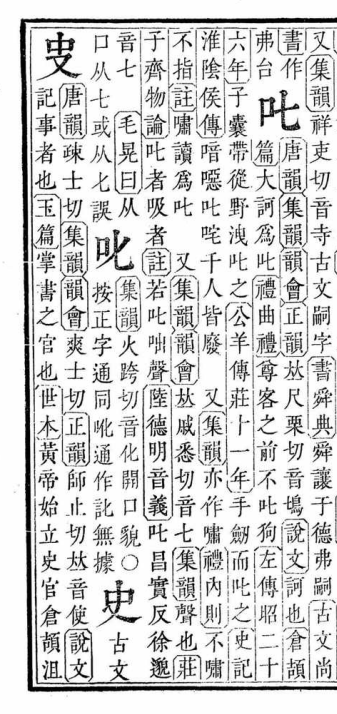 又集韻祥吏切音寺古文嗣字書舜典舜讓于德弗嗣古文尚
書作
弗台
叱
唐韻集韻韻會正韻𠀤尺栗切音說文訶也倉頡
篇大訶爲叱禮曲禮尊客之前不叱狗左傳昭二十
六年子囊帶從野洩叱之公羊傳莊十一年手劒而叱之史記
淮陰侯傳喑噁叱咤千人皆廢 又集韻亦作嘯禮內則不嘯
不指註嘯讀爲叱 又集韻韻會𠀤戚悉切音七集韻聲也莊
子齊物論叱者吸者註若叱咄聲陸德明音義叱昌實反徐邈
音七 毛晃曰从
口从七或从匕誤
叱
集韻火跨切音化開口貌○
按正字通同吪通作訛無據
史
古文
㕜
唐韻疎士切集韻韻會爽士切正韻師止切𠀤音使說文
記事者也玉篇掌書之官也世本黃帝始立史官倉頡沮